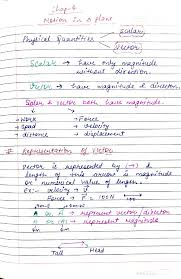 Chap-4
Motion In a plane
Physical Quantities
Scalar
Vector
Scalar → have only magnitude
without direction.
Vector → have magnitude & direction.
Scalar & vector both have magnitude.
• Work • Force
• Speed • velocity
• distance • displacement
# Representation of Vector
Vector is represented by (→) &
length of this arrow is magnitude
or numerical value of length.
Ex:- velocity = V⃗
Force = F⃗ =
represent vector/direction
represent magnitude
Tail Head